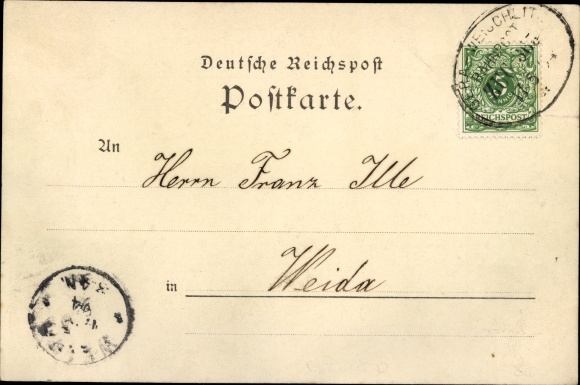 Deutsche Reichspost
Postkarte.
An
Herrn Franz Ille
in Weida
REICHSPOST